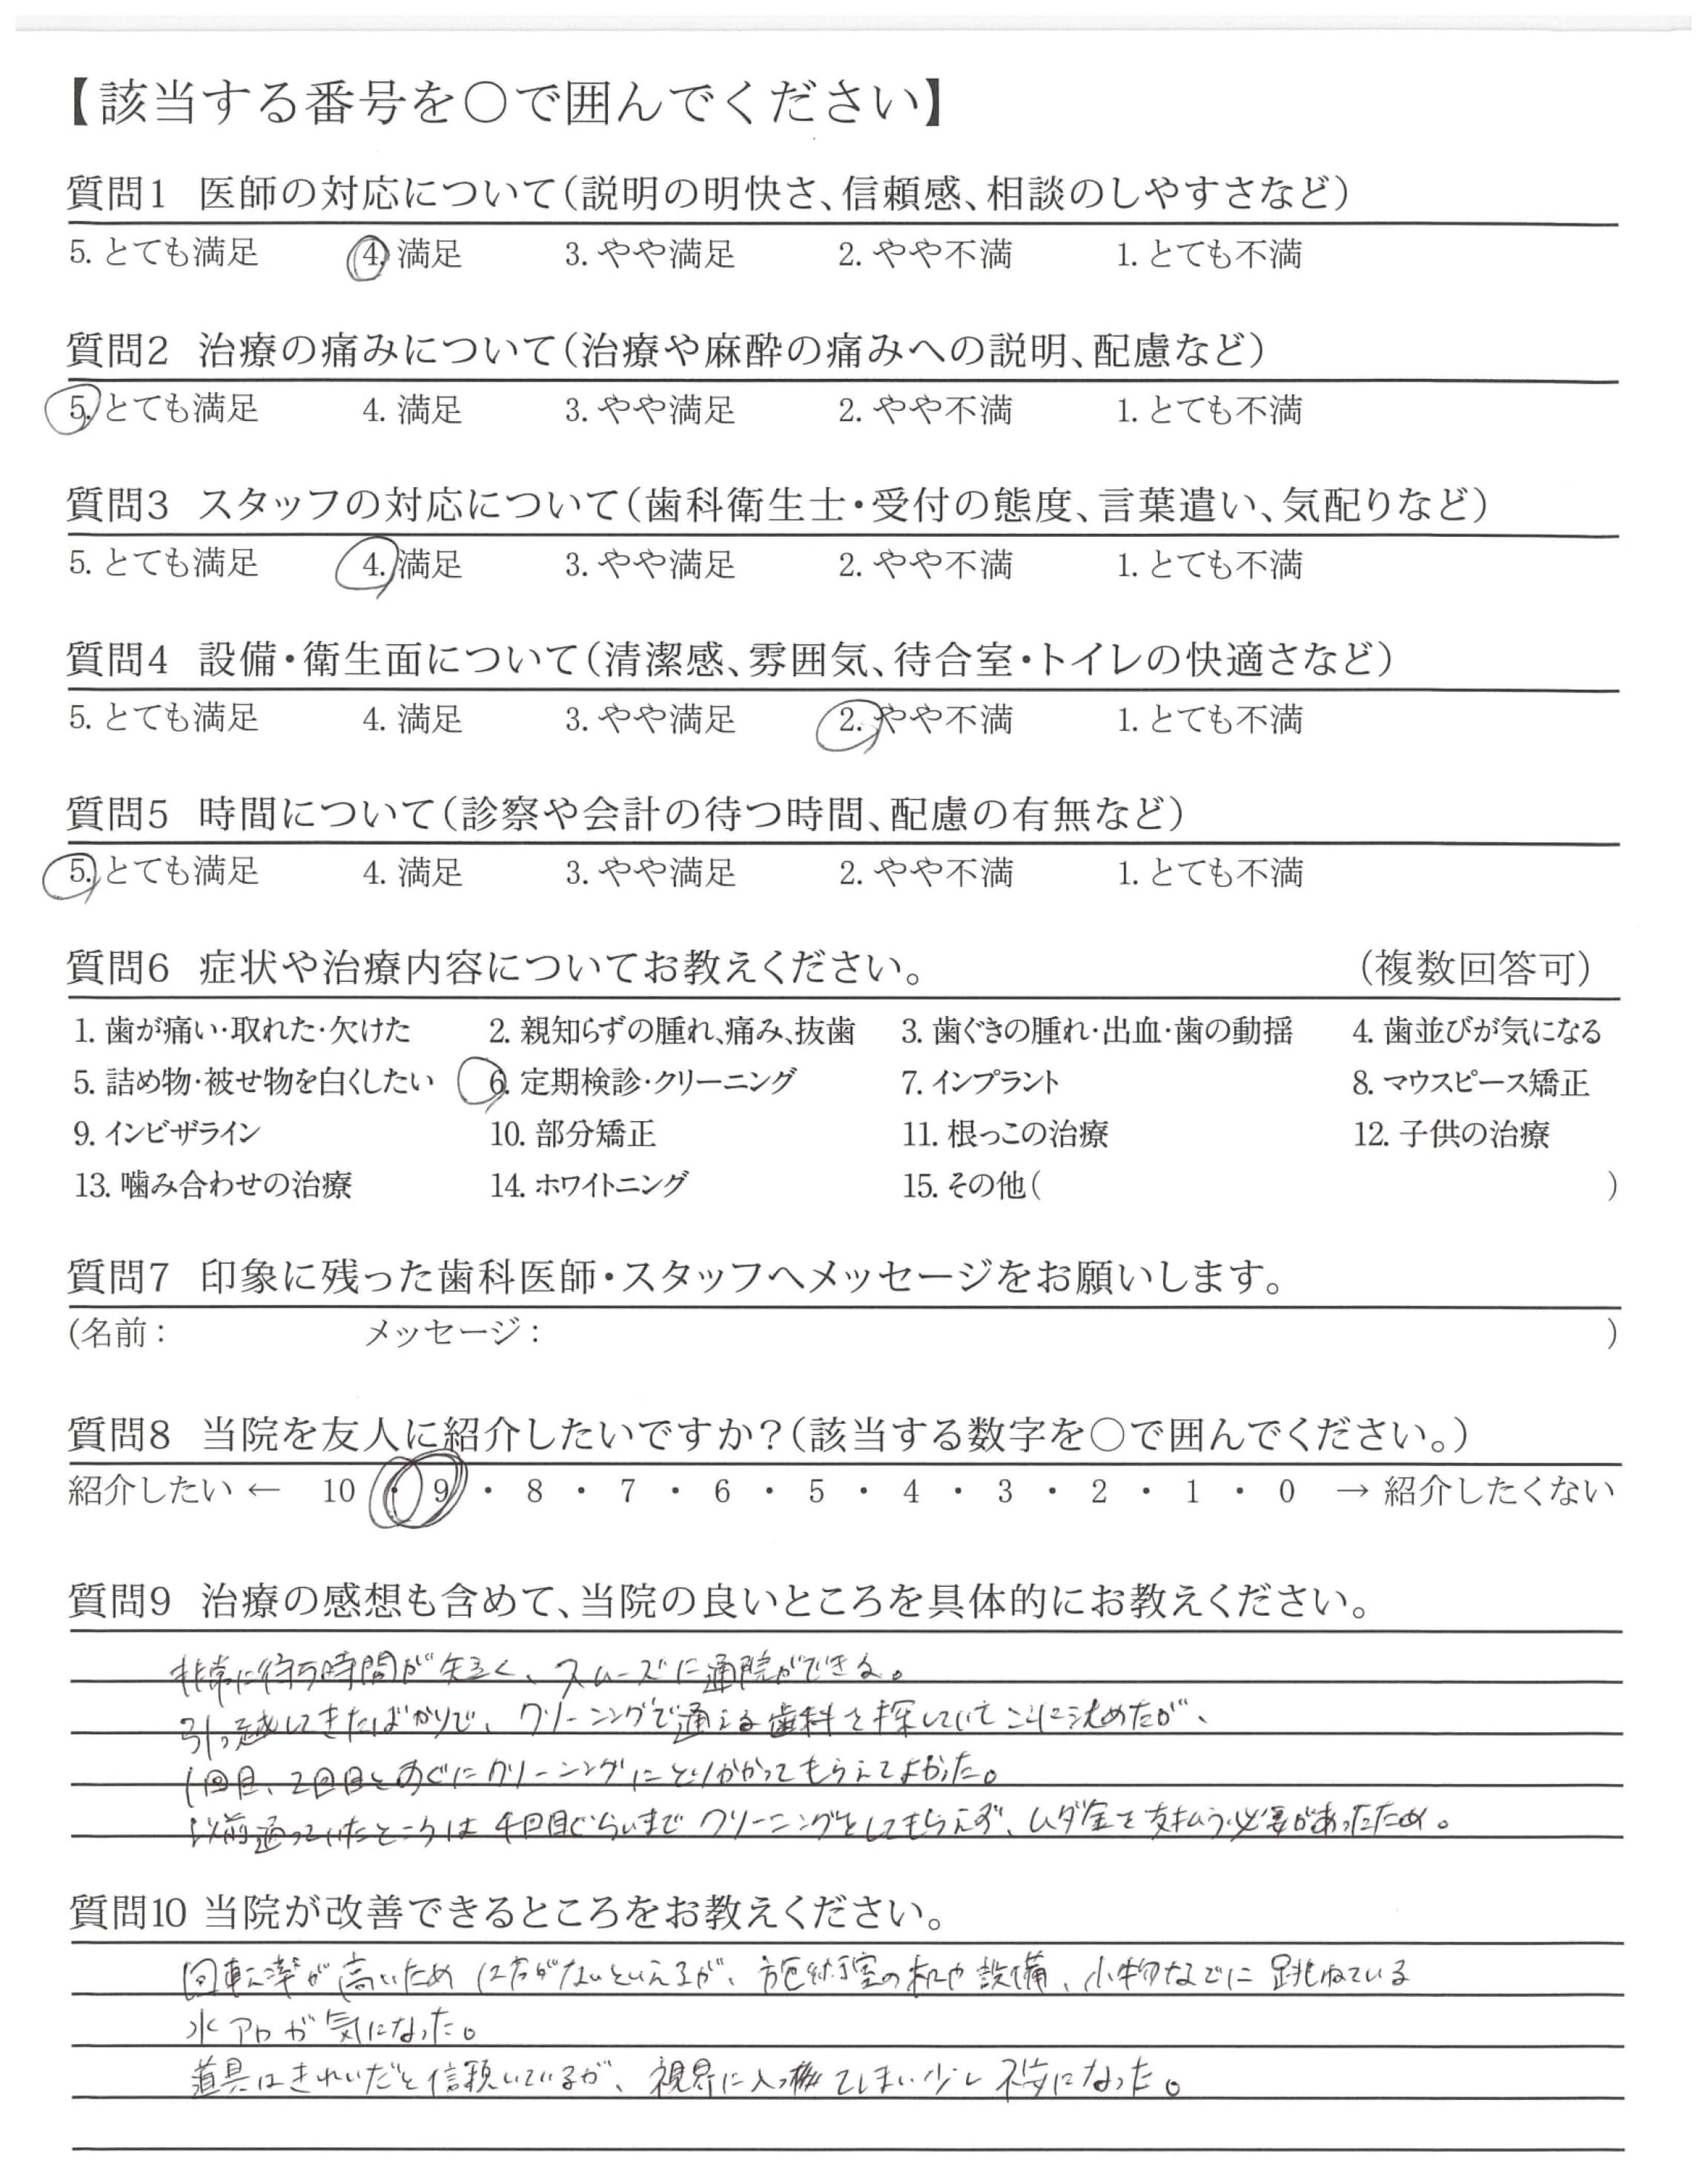 【該当する番号を○で囲んでください】
質問1 医師の対応について（説明の明快さ、信頼感、相談のしやすさなど）
5. とても満足 4. 満足 3. やや満足 2. やや不満 1. とても不満
質問2 治療の痛みについて（治療や麻酔の痛みへの説明、配慮など）
5. とても満足 4. 満足 3. やや満足 2. やや不満 1. とても不満
質問3 スタッフの対応について（歯科衛生士・受付の態度、言葉遣い、気配りなど）
5. とても満足 4. 満足 3. やや満足 2. やや不満 1. とても不満
質問4 設備・衛生面について（清潔感、雰囲気、待合室・トイレの快適さなど）
5. とても満足 4. 満足 3. やや満足 2. やや不満 1. とても不満
質問5 時間について（診察や会計の待つ時間、配慮の有無など）
5. とても満足 4. 満足 3. やや満足 2. やや不満 1. とても不満
質問6 症状や治療内容についてお教えください。 （複数回答可）
1. 歯が痛い・取れた・欠けた 2. 親知らずの腫れ、痛み、抜歯 3. 歯ぐきの腫れ・出血・歯の動揺 4. 歯並びが気になる
5. 詰め物・被せ物を白くしたい 6. 定期検診・クリーニング 7. インプラント 8. マウスピース矯正
9. インビザライン 10. 部分矯正 11. 根っこの治療 12. 子供の治療
13. 噛み合わせの治療 14. ホワイトニング 15. その他（ ）
質問7 印象に残った歯科医師・スタッフへメッセージをお願いします。
（名前： メッセージ： ）
質問8 当院を友人に紹介したいですか？（該当する数字を○で囲んでください。）
紹介したい ← 10 ・ 9 ・ 8 ・ 7 ・ 6 ・ 5 ・ 4 ・ 3 ・ 2 ・ 1 ・ 0 → 紹介したくない
質問9 治療の感想も含めて、当院の良いところを具体的にお教えください。
非常に待ち時間が短く、スムーズに通院ができる。
引っ越してきたばかりで、クリーニングで通える歯科を探していてここに決めたが、
1回目、2回目とすぐにクリーニングにとりかかってもらえてよかった。
以前通っていたところは4回目ぐらいまでクリーニングをしてもらえず、ムダ金を支払う必要があったため。
質問10 当院が改善できるところをお教えください。
回転率が高いため仕方がないといえるが、施術室の机や設備、小物などに跳ねている
水アカが気になった。
道具はきれいだと信頼しているが、視界に入ってしまい少し不安になった。